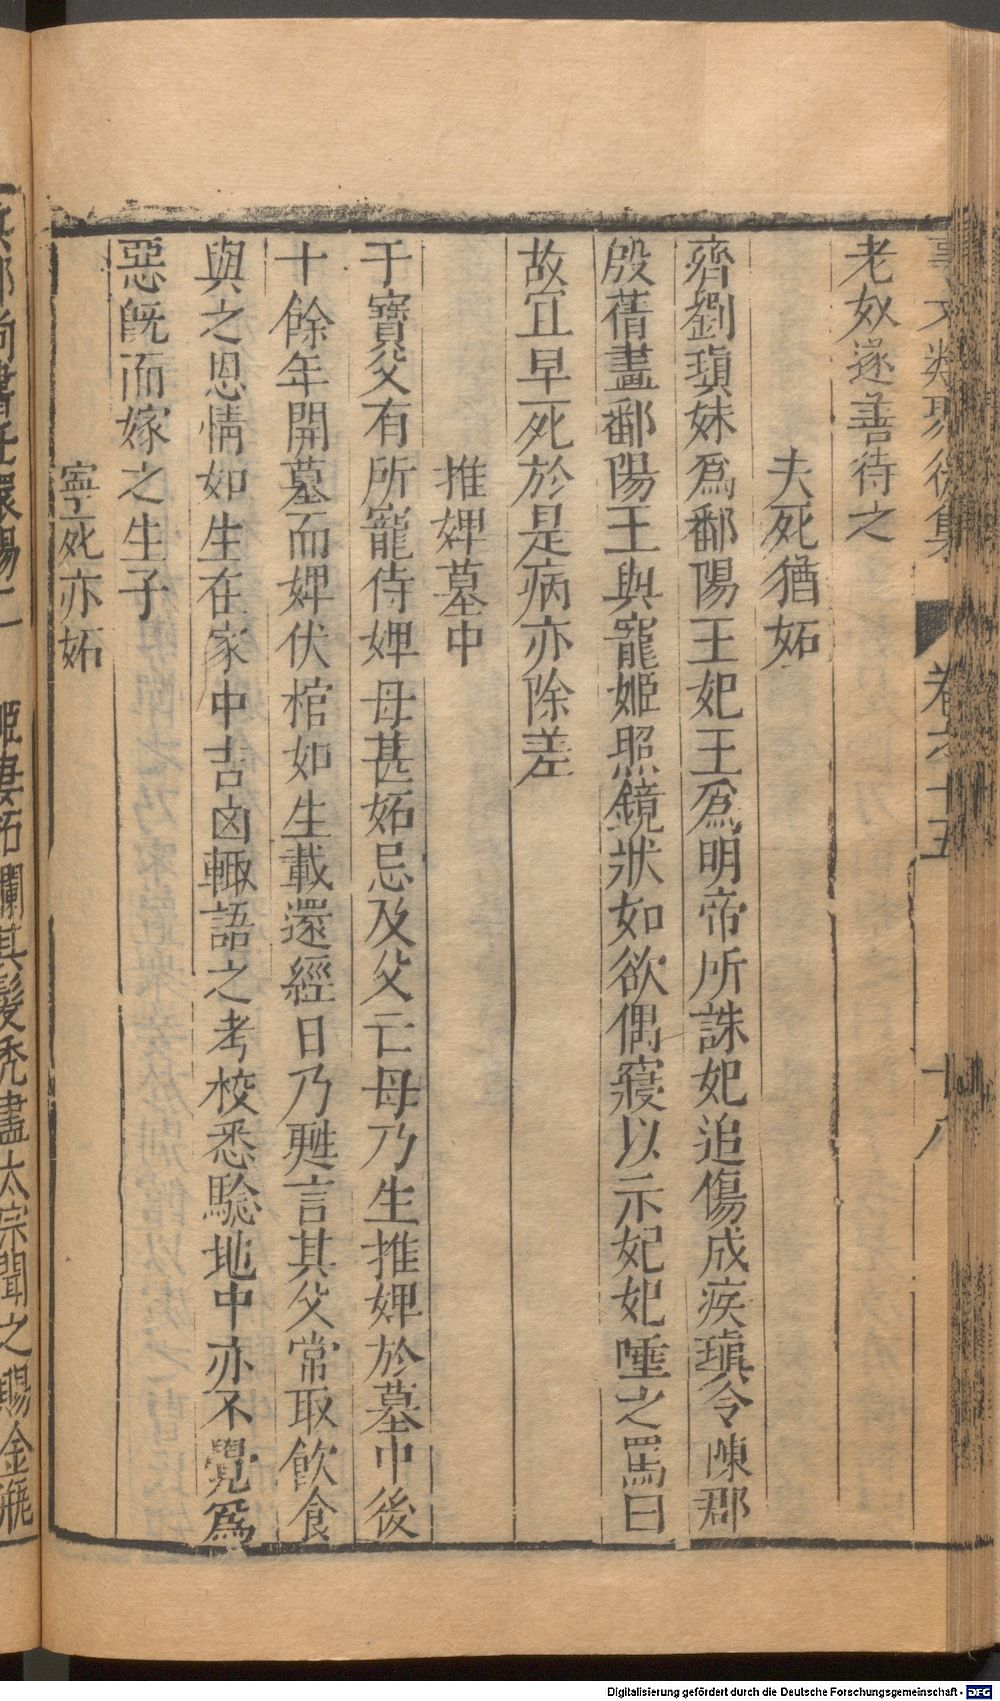 事文類聚後集 卷之十五 十八
老奴遂善待之
夫死猶妬
齊劉瑱妹爲鄱陽王妃王爲明帝所誅妃追傷成疾瑱令陳郡
殷蒨畫鄱陽王與寵姬照鏡狀如欲偶寢以示妃妃唾之罵曰
故宜早死於是病亦除差
推婢墓中
于寶父有所寵侍婢母甚妬忌及父亡母乃生推婢於墓中後
十餘年開墓而婢伏棺如生載還經日乃甦言其父常取飲食
與之恩情如生在家中吉凶輒語之考校悉驗地中亦不覺爲
惡旣而嫁之生子
寧死亦妬
兵部尚書任瓌賜二 姬妻妬爛其髮秃盡太宗聞之賜金瓶
Digitalisierung gefördert durch die Deutsche Forschungsgemeinschaft - DFG